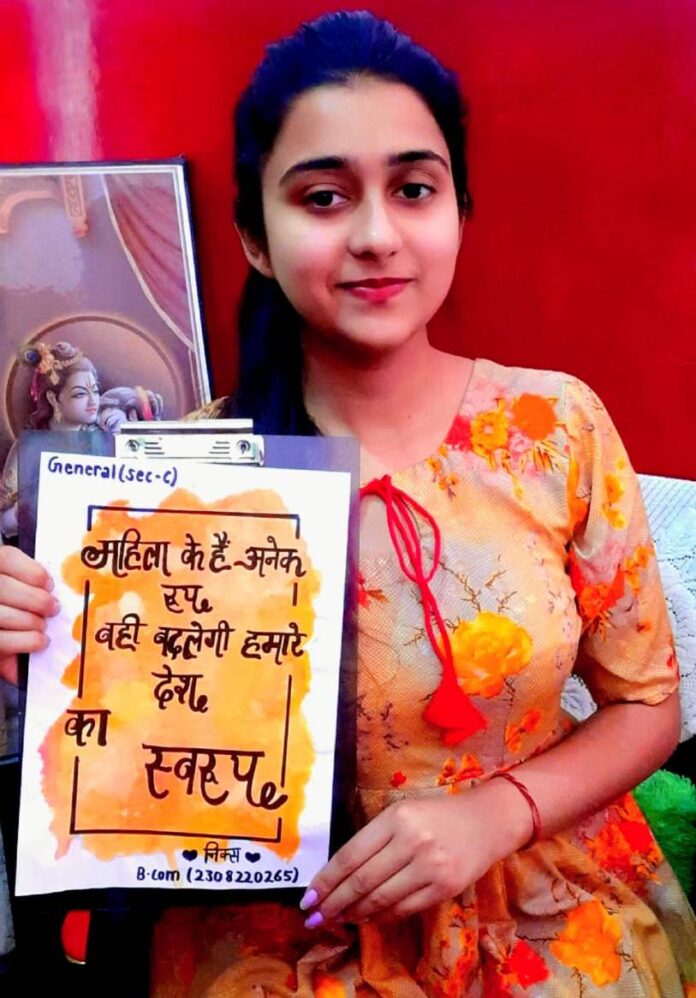 General (sec-c)
महिला के हैं अनेक
रूप,
वही बदलेगी हमारे
देश,
का
स्वरूप,
निक्स
B.com (2308220265)